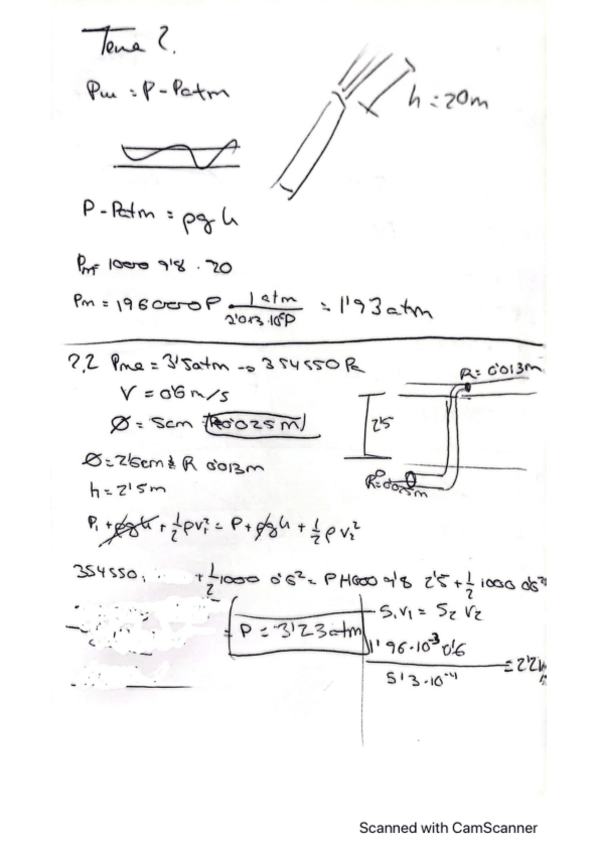 Tema 2.
Pm = P - Patm
h = 20m
P - Patm = ρg h
Pm = 1000 9'8 . 20
Pm = 196000 P 1 atm / 1'013·10⁵P = 1'93 atm
2.2 Pma = 3'5atm → 354550 Pa
R = 0'013m
V = 0'6 m/s
Ø = 5cm R=0'025m
2'5
Ø = 2'6cm R 0'013m
R=0'025m
h = 2'5m
P₁ + ρgh + ½ρv₁² = P + ρgh + ½ρv₂²
354550, + ½ 1000 0'6² = P + 1000 9'8 2'5 + ½ 1000 0'6²
S₁V₁ = S₂V₂
= P = 3'23 atm
1'96·10⁻³ 0'6 / 5'3·10⁻⁴ = 2'2
Scanned with CamScanner